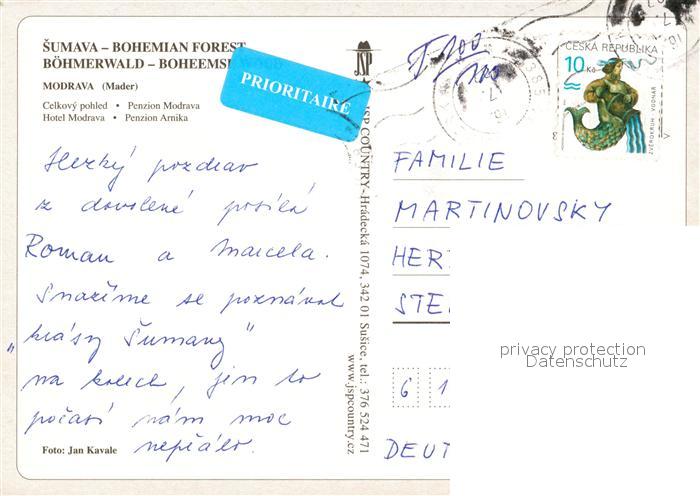 ŠUMAVA – BOHEMIAN FOREST
BÖHMERWALD – BOHEEMSE WOOD
MODRAVA (Mader)
Celkový pohled • Penzion Modrava
Hotel Modrava • Penzion Arnika
PRIORITAIRE
JSP
JSP COUNTRY- Hrádecká 1074, 342 01 Sušice, tel.: 376 524 471
www.jspcountry.cz
T 100
ČESKÁ REPUBLIKA
10 Kč
ZVĚROKRUH VODNÁŘ
Hezký pozdrav
z dovolené posílá
Roman a Marcela.
Snažíme se poznávat
"krásy Šumavy"
na kolech, jen to
počasí nám moc
nepřálo.
Foto: Jan Kavale
FAMILIE
MARTINOVSKY
HER
STE
6 1
DEUT
privacy protection
Datenschutz